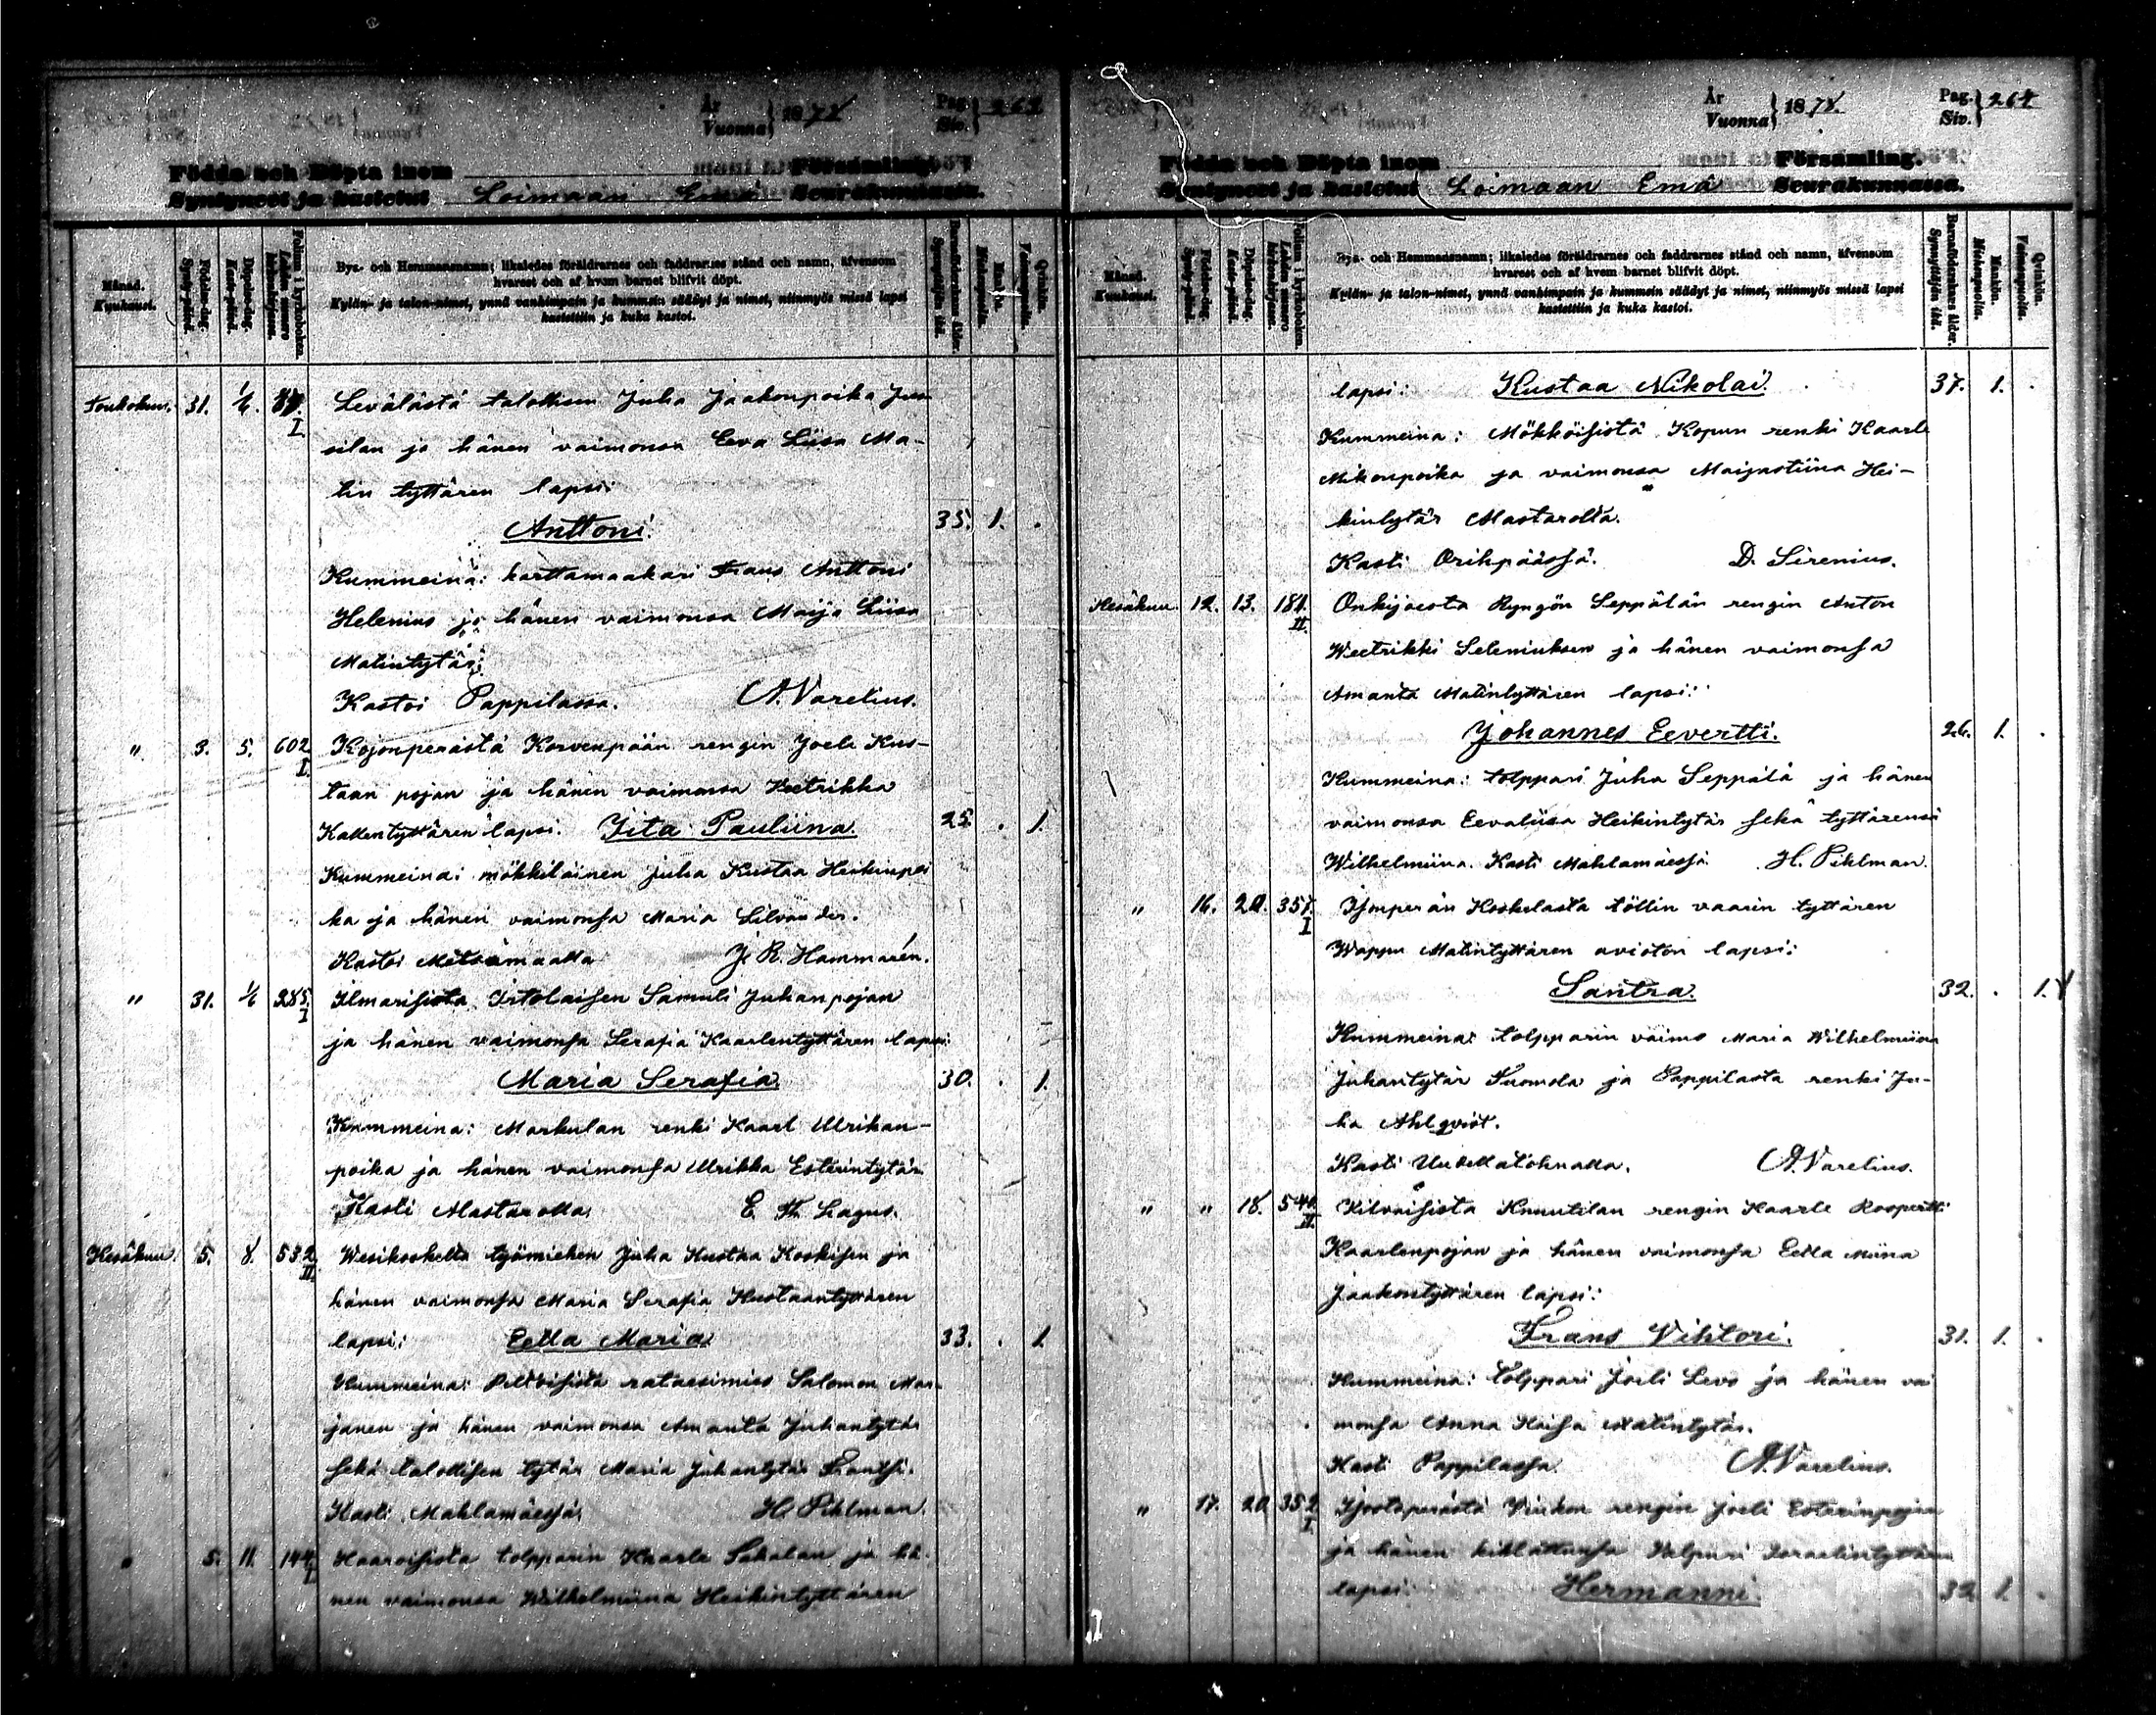 År
Vuonna } 1878.
Pag.
Siv. }
Födda och Döpta inom Församling.
Syntyneet ja kastetut Loimaan Emä Seurakunnassa.
Månad.
Kuukausi.
Födelse-dag.
Synty-päivä.
Döpelse-dag.
Kaste-päivä.
Folium i kyrkoboken.
Lehden numero kirkonkirjassa.
Bys- och Hemmansnamn; likaledes föräldrarnes och faddrarnes stånd och namn, äfvensom
hvarest och af hvem barnet blifvit döpt.
Kylän- ja talon-nimet, ynnä vanhimpain ja kummein säädyt ja nimet, niinmyös missä lapsi
kastettiin ja kuka kastoi.
Barnaföderskans ålder.
Synnyttäjän ikä.
Mankön.
Miehenpuolia.
Qvinkön.
Vaimonpuolia.
Toukokuu. 31. 1/6. 87. I. Levälästä talollisen Juha Jaakonpoika Jus-
silan ja hänen vaimonsa Eeva Liisa Ma-
tin tyttären lapsi:
Anttoni. 35. 1. .
Kummeina: karttamaakari Frans Anttoni
Helenius ja hänen vaimonsa Maija Liisa
Matintytär.
Kastoi Pappilassa. A. Varelius.
" 3. 5. 602 I. Kojonperästä Korvenpään rengin Joeli Kus-
taan pojan ja hänen vaimonsa
lapsi. Iita Pauliina. 25. . 1.
Kummeina: mökkiläinen Juha Kustaa Heikinpoi
ka ja hänen vaimonsa Maria Silvander.
Kastoi Metsämaalla J. R. Hammarén.
" 31. 1/6 285. I Ilmarisista Samuli Juhanpojan
ja hänen vaimonsa Serafia Kaarlentyttären lapsi:
Maria Serafia. 30. . 1.
Kummeina: Markulan renki Kaarl Ulrikan-
poika ja hänen vaimonsa Ulrikka Esterintytär.
Kasti Mastarolla. E. Th. Lagus.
Kesäkuu. 5. 8. 532 II. Wesikoskelta työmiehen Juha Kustaa Koskisen ja
hänen vaimonsa Maria Serafia Kustaantyttären
lapsi: Eella Maria. 33. . 1.
Kummeina: rataesimies Salomon Mar-
janen ja hänen vaimonsa Amanta Juhantytär
sekä talollisen tytär Maria Juhantytär Frantsi.
Kasti Mahlamäessä. H. Pihlman.
" 5. 11. 144 I Haaroisista tolpparin Kaarle Sakalan ja hä-
nen vaimonsa Wilhelmiina Heikintyttären
År
Vuonna } 1878.
Pag.
Siv. } 264
Födda och Döpta inom Församling.
Syntyneet ja kastetut Loimaan Emä Seurakunnassa.
Månad.
Kuukausi.
Födelse-dag.
Synty-päivä.
Döpelse-dag.
Kaste-päivä.
Folium i kyrkoboken.
Lehden numero kirkonkirjassa.
Bys- och Hemmansnamn; likaledes föräldrarnes och faddrarnes stånd och namn, äfvensom
hvarest och af hvem barnet blifvit döpt.
Kylän- ja talon-nimet, ynnä vanhimpain ja kummein säädyt ja nimet, niinmyös missä lapsi
kastettiin ja kuka kastoi.
Barnaföderskans ålder.
Synnyttäjän ikä.
Mankön.
Miehenpuolia.
Qvinkön.
Vaimonpuolia.
lapsi: Kustaa Nikolai. 37. 1. .
Kummeina: Mökköisistä Kopun renki Kaarle
Mikonpoika ja vaimonsa Maijastiina Hei-
kintytär Mastarolla.
Kasti Orihpäässä. D. Sirenius.
Kesäkuu. 12. 13. 181. II. Onkijoesta Ryngön Seppälän rengin Anton
Weetrikki Seleniuksen ja hänen vaimonsa
Amanta Matintyttären lapsi:
Johannes Eevertti. 26. 1. .
Kummeina: tolppari Juha Seppälä ja hänen
vaimonsa Eevaliisa Heikintytär sekä tyttärensä
Wilhelmiina. Kasti Mahlamäessä. H. Pihlman.
" 16. 20. 357. I Koskelasta töllin vaarin tyttären
Wappu Matintyttären avioton lapsi:
Santra. 32. . 1.
Kummeina: tolpparin vaimo Maria Wilhelmiina
Juhantytär Tuomola ja Pappilasta renki Ju-
ha Ahlqvist.
Kasti A. Varelius.
" " 18. 540 II. Kilvoisista Knuutilan rengin Kaarle Roopertti
Kaarlenpojan ja hänen vaimonsa Eella Miina
Jaakontyttären lapsi:
Frans Vihtori. 31. 1. .
Kummeina: tolppari Joeli Levo ja hänen vai
monsa Anna Kaisa Matintytär.
Kasti Pappilassa. A. Varelius.
" 17. 20. 352 I. rengin Joeli Esterinpojan
ja hänen kihlattunsa Valpuri Israelintyttären
lapsi: Hermanni. 32. 1. .